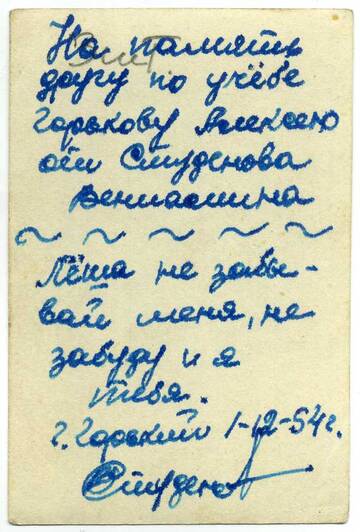 На память
другу по учёбе
Горькову Алексею
от Студенова
Вениамина
~ ~ ~ ~ ~
Лёша не забы-
вай меня, не
забуду и я
тебя.
г. Горький 1-12-54г.
Студенов